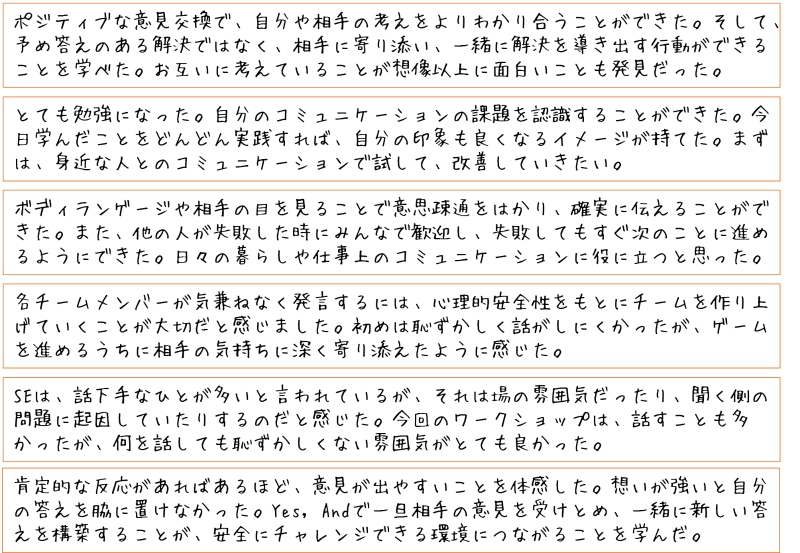 ポジティブな意見交換で、自分や相手の考えをよりわかり合うことができた。そして、
予め答えのある解決ではなく、相手に寄り添い、一緒に解決を導き出す行動ができる
ことを学べた。お互いに考えていることが想像以上に面白いことも発見だった。
とても勉強になった。自分のコミュニケーションの課題を認識することができた。今
日学んだことをどんどん実践すれば、自分の印象も良くなるイメージが持てた。まず
は、身近な人とのコミュニケーションで試して、改善していきたい。
ボディランゲージや相手の目を見ることで意思疎通をはかり、確実に伝えることがで
きた。また、他の人が失敗した時にみんなで歓迎し、失敗してもすぐ次のことに進め
るようにできた。日々の暮らしや仕事上のコミュニケーションに役に立つと思った。
各チームメンバーが気兼ねなく発言するには、心理的安全性をもとにチームを作り上
げていくことが大切だと感じました。初めは恥ずかしく話がしにくかったが、ゲーム
を進めるうちに相手の気持ちに深く寄り添えたように感じた。
SEは、話下手なひとが多いと言われているが、それは場の雰囲気だったり、聞く側の
問題に起因していたりするのだと感じた。今回のワークショップは、話すことも多
かったが、何を話しても恥ずかしくない雰囲気がとても良かった。
肯定的な反応があればあるほど、意見が出やすいことを体感した。想いが強いと自分
の答えを脇に置けなかった。Yes, Andで一旦相手の意見を受けとめ、一緒に新しい答
えを構築することが、安全にチャレンジできる環境につながることを学んだ。